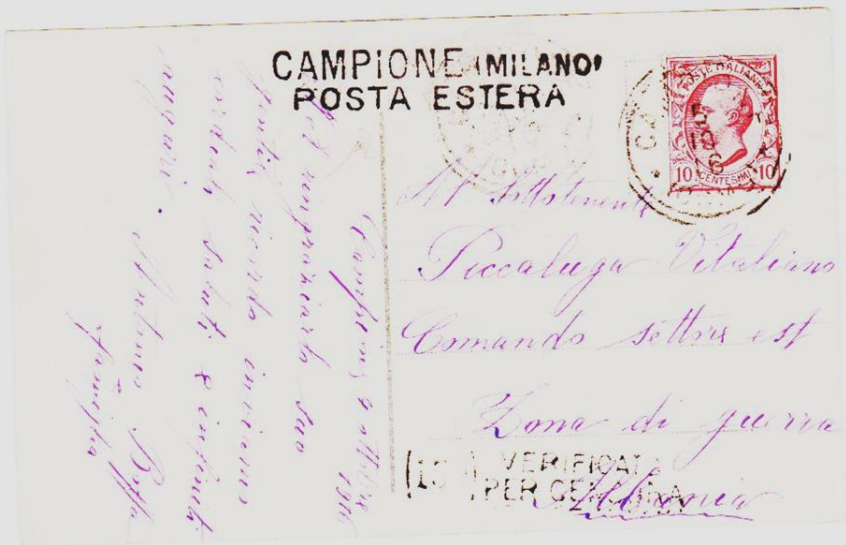 CAMPIONE (MILANO)
POSTA ESTERA
POSTE ITALIANE
10 CENTESIMI 10
Al Sottotenente
Piccaluga Vitaliano
Comando settore est
Zona di guerra
Albania
VERIFICATO
PER CENSURA
Campione, ottobre
1916
Nel ringraziarlo suo
gentil ricordo inviamo
cordiali saluti e infiniti
auguri.
Antonio
famiglia